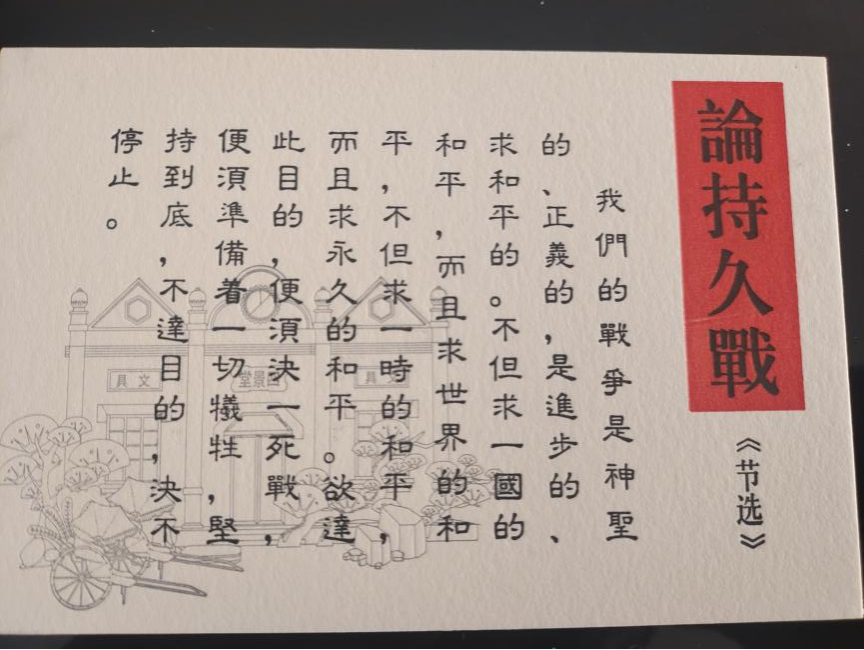 論持久戰
《节选》
我們的戰爭是神聖
的、正義的，是進步的、
求和平的。不但求一國的
和平，而且求世界的和
平，不但求一時的和平，
而且求永久的和平。欲達
此目的，便須決一死戰，
便須準備着一切犧牲，堅
持到底，不達目的，決不
停止。
文具
文具